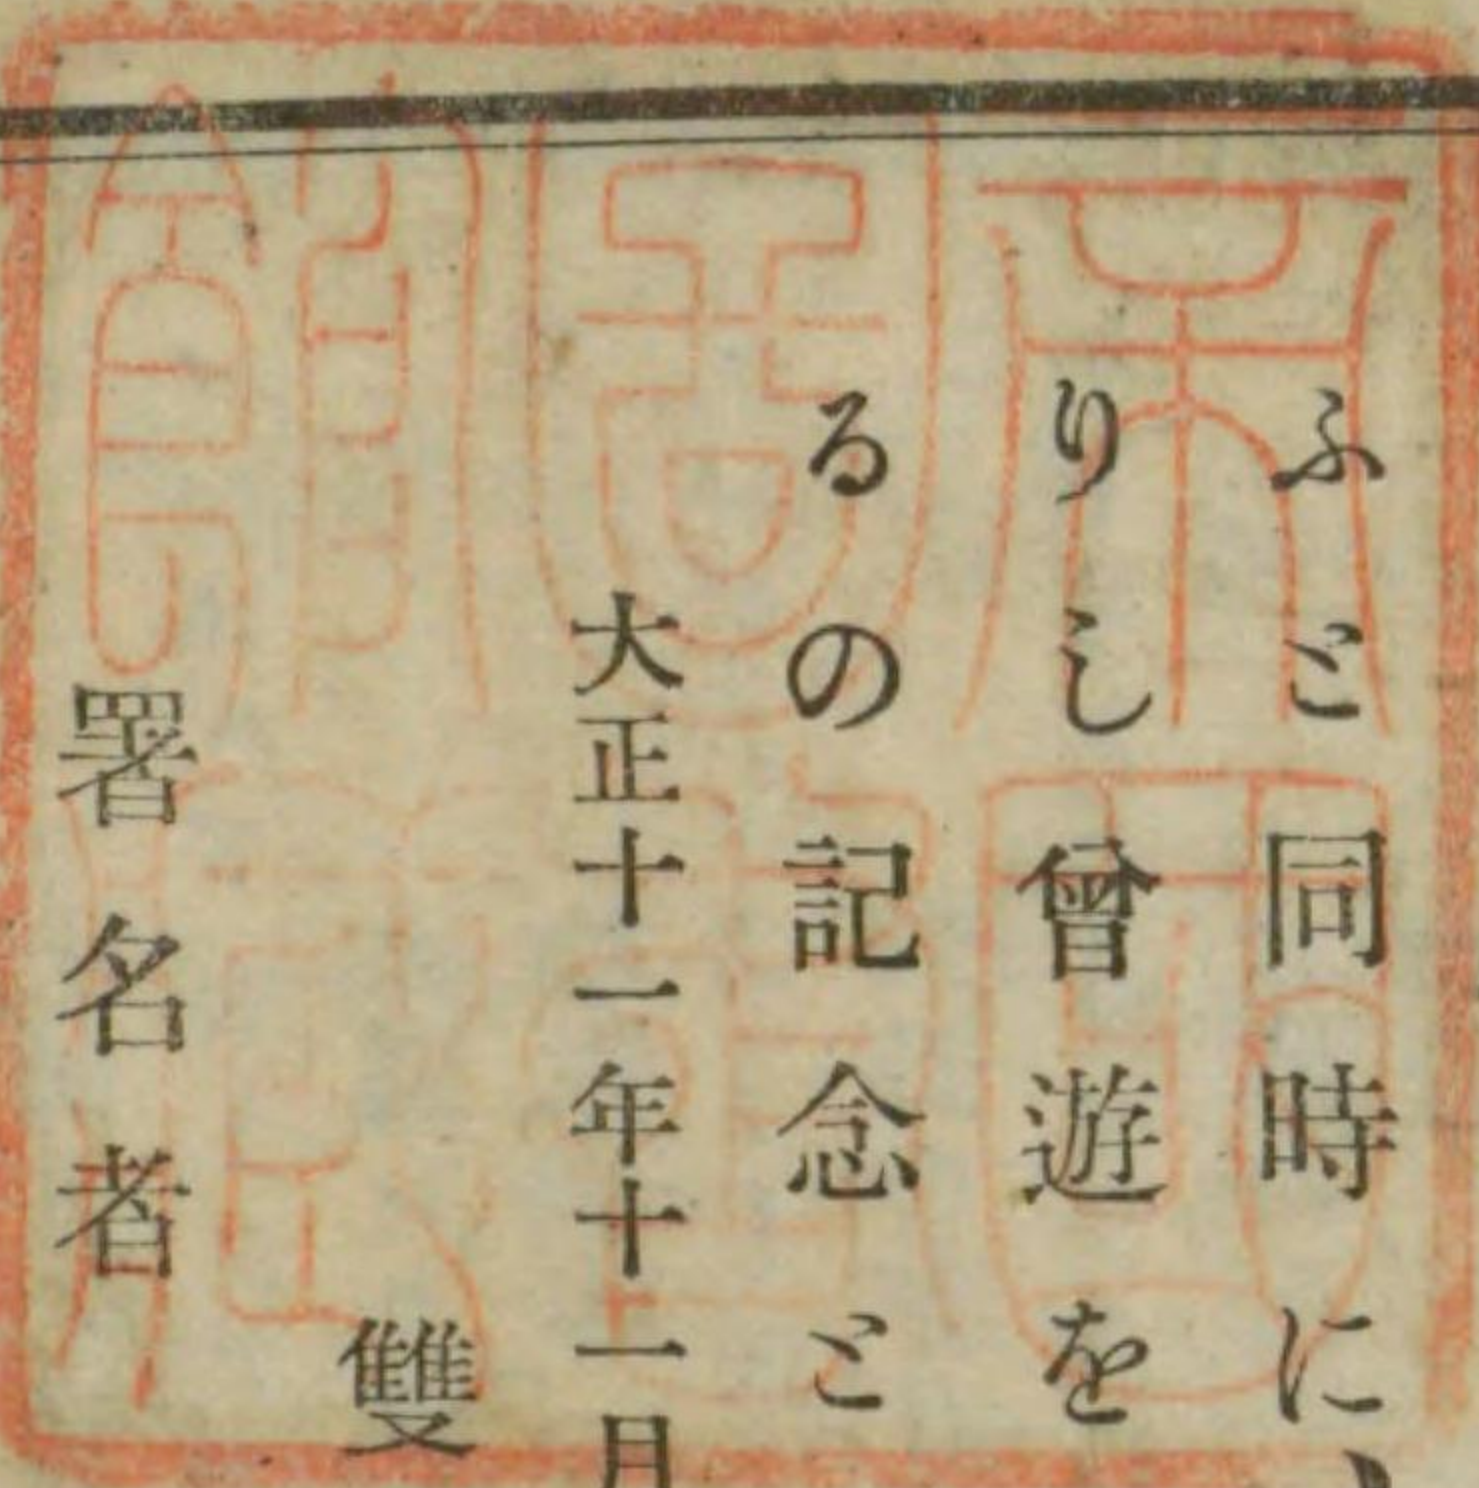 ふと同時に、
りし曾遊を
るの記念と
大正十一年十一月
雙
署名者
帝國圖書館藏